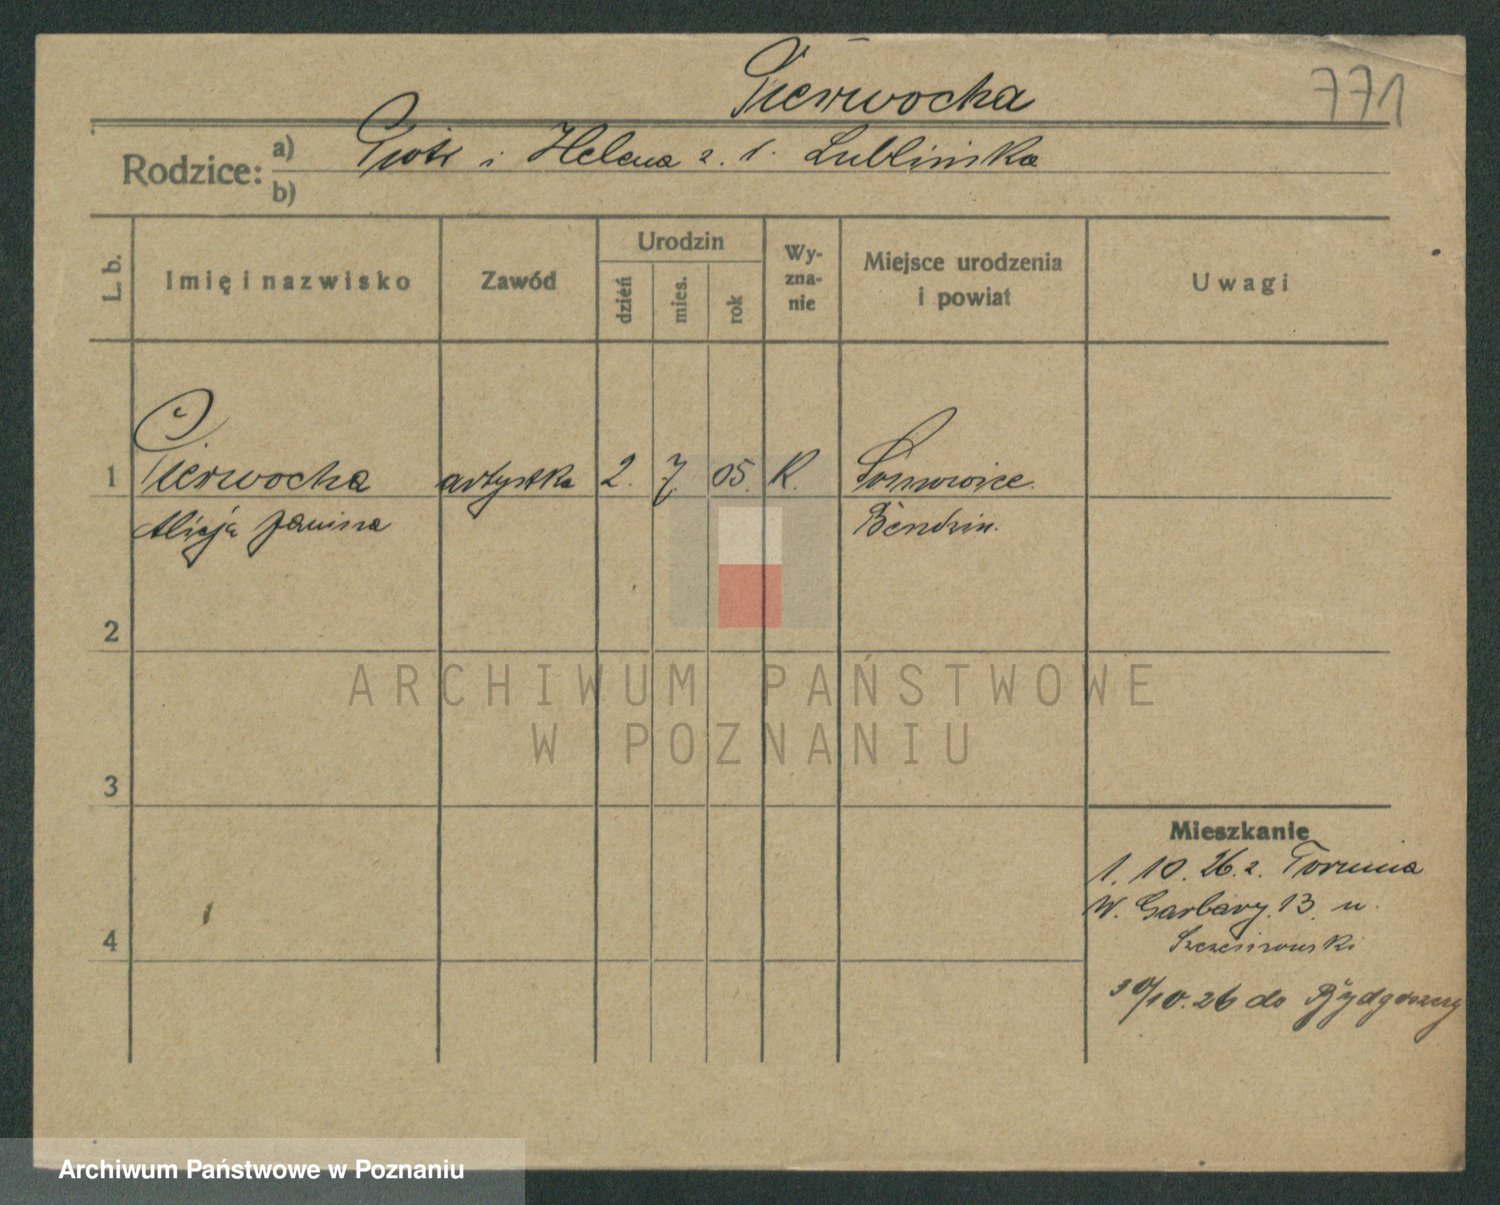 Pierwocha
771
Rodzice: a) Piotr i Helena z. d. Lublińska
b)
L. b.
Imię i nazwisko
Zawód
Urodzin
dzień
mies.
rok
Wy-
zna-
nie
Miejsce urodzenia
i powiat
Uwagi
1 Pierwocha artystka 2. 7. 05. K. Sosnowice
Alicja Janina Bendzin.
2
3
4
ARCHIWUM PAŃSTWOWE
W POZNANIU
Mieszkanie
1. 10. 26. z. Torunia
W. Garbary. 13. u.
30/10. 26 do Bydgoszczy
Archiwum Państwowe w Poznaniu